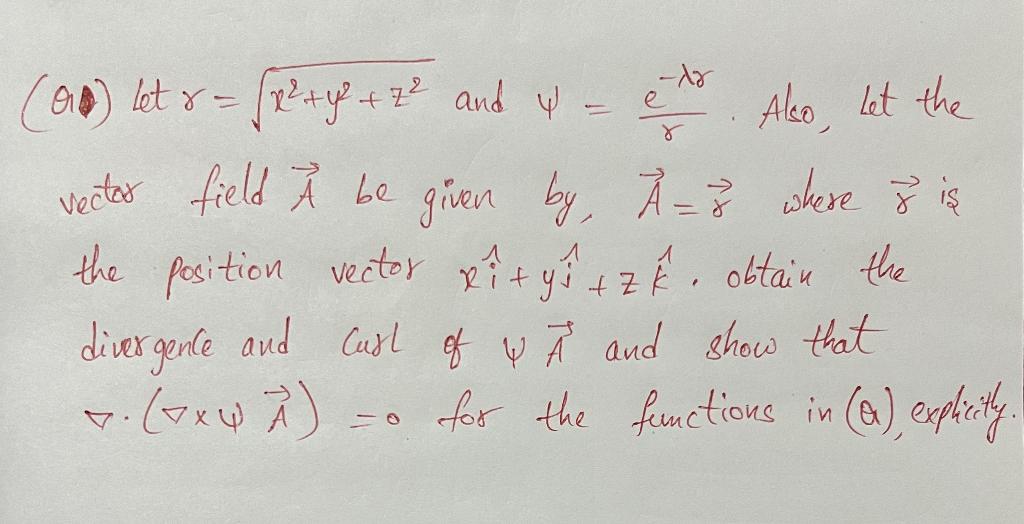 (a) Let r = √x²+y²+z² and ψ = e^-λr / r. Also, let the
vector field A⃗ be given by, A⃗ = r⃗ where r⃗ is
the position vector xî + yĵ + zk̂. obtain the
divergence and Curl of ψA⃗ and show that
∇·(∇×ψA⃗) = 0 for the functions in (a), explicitly.